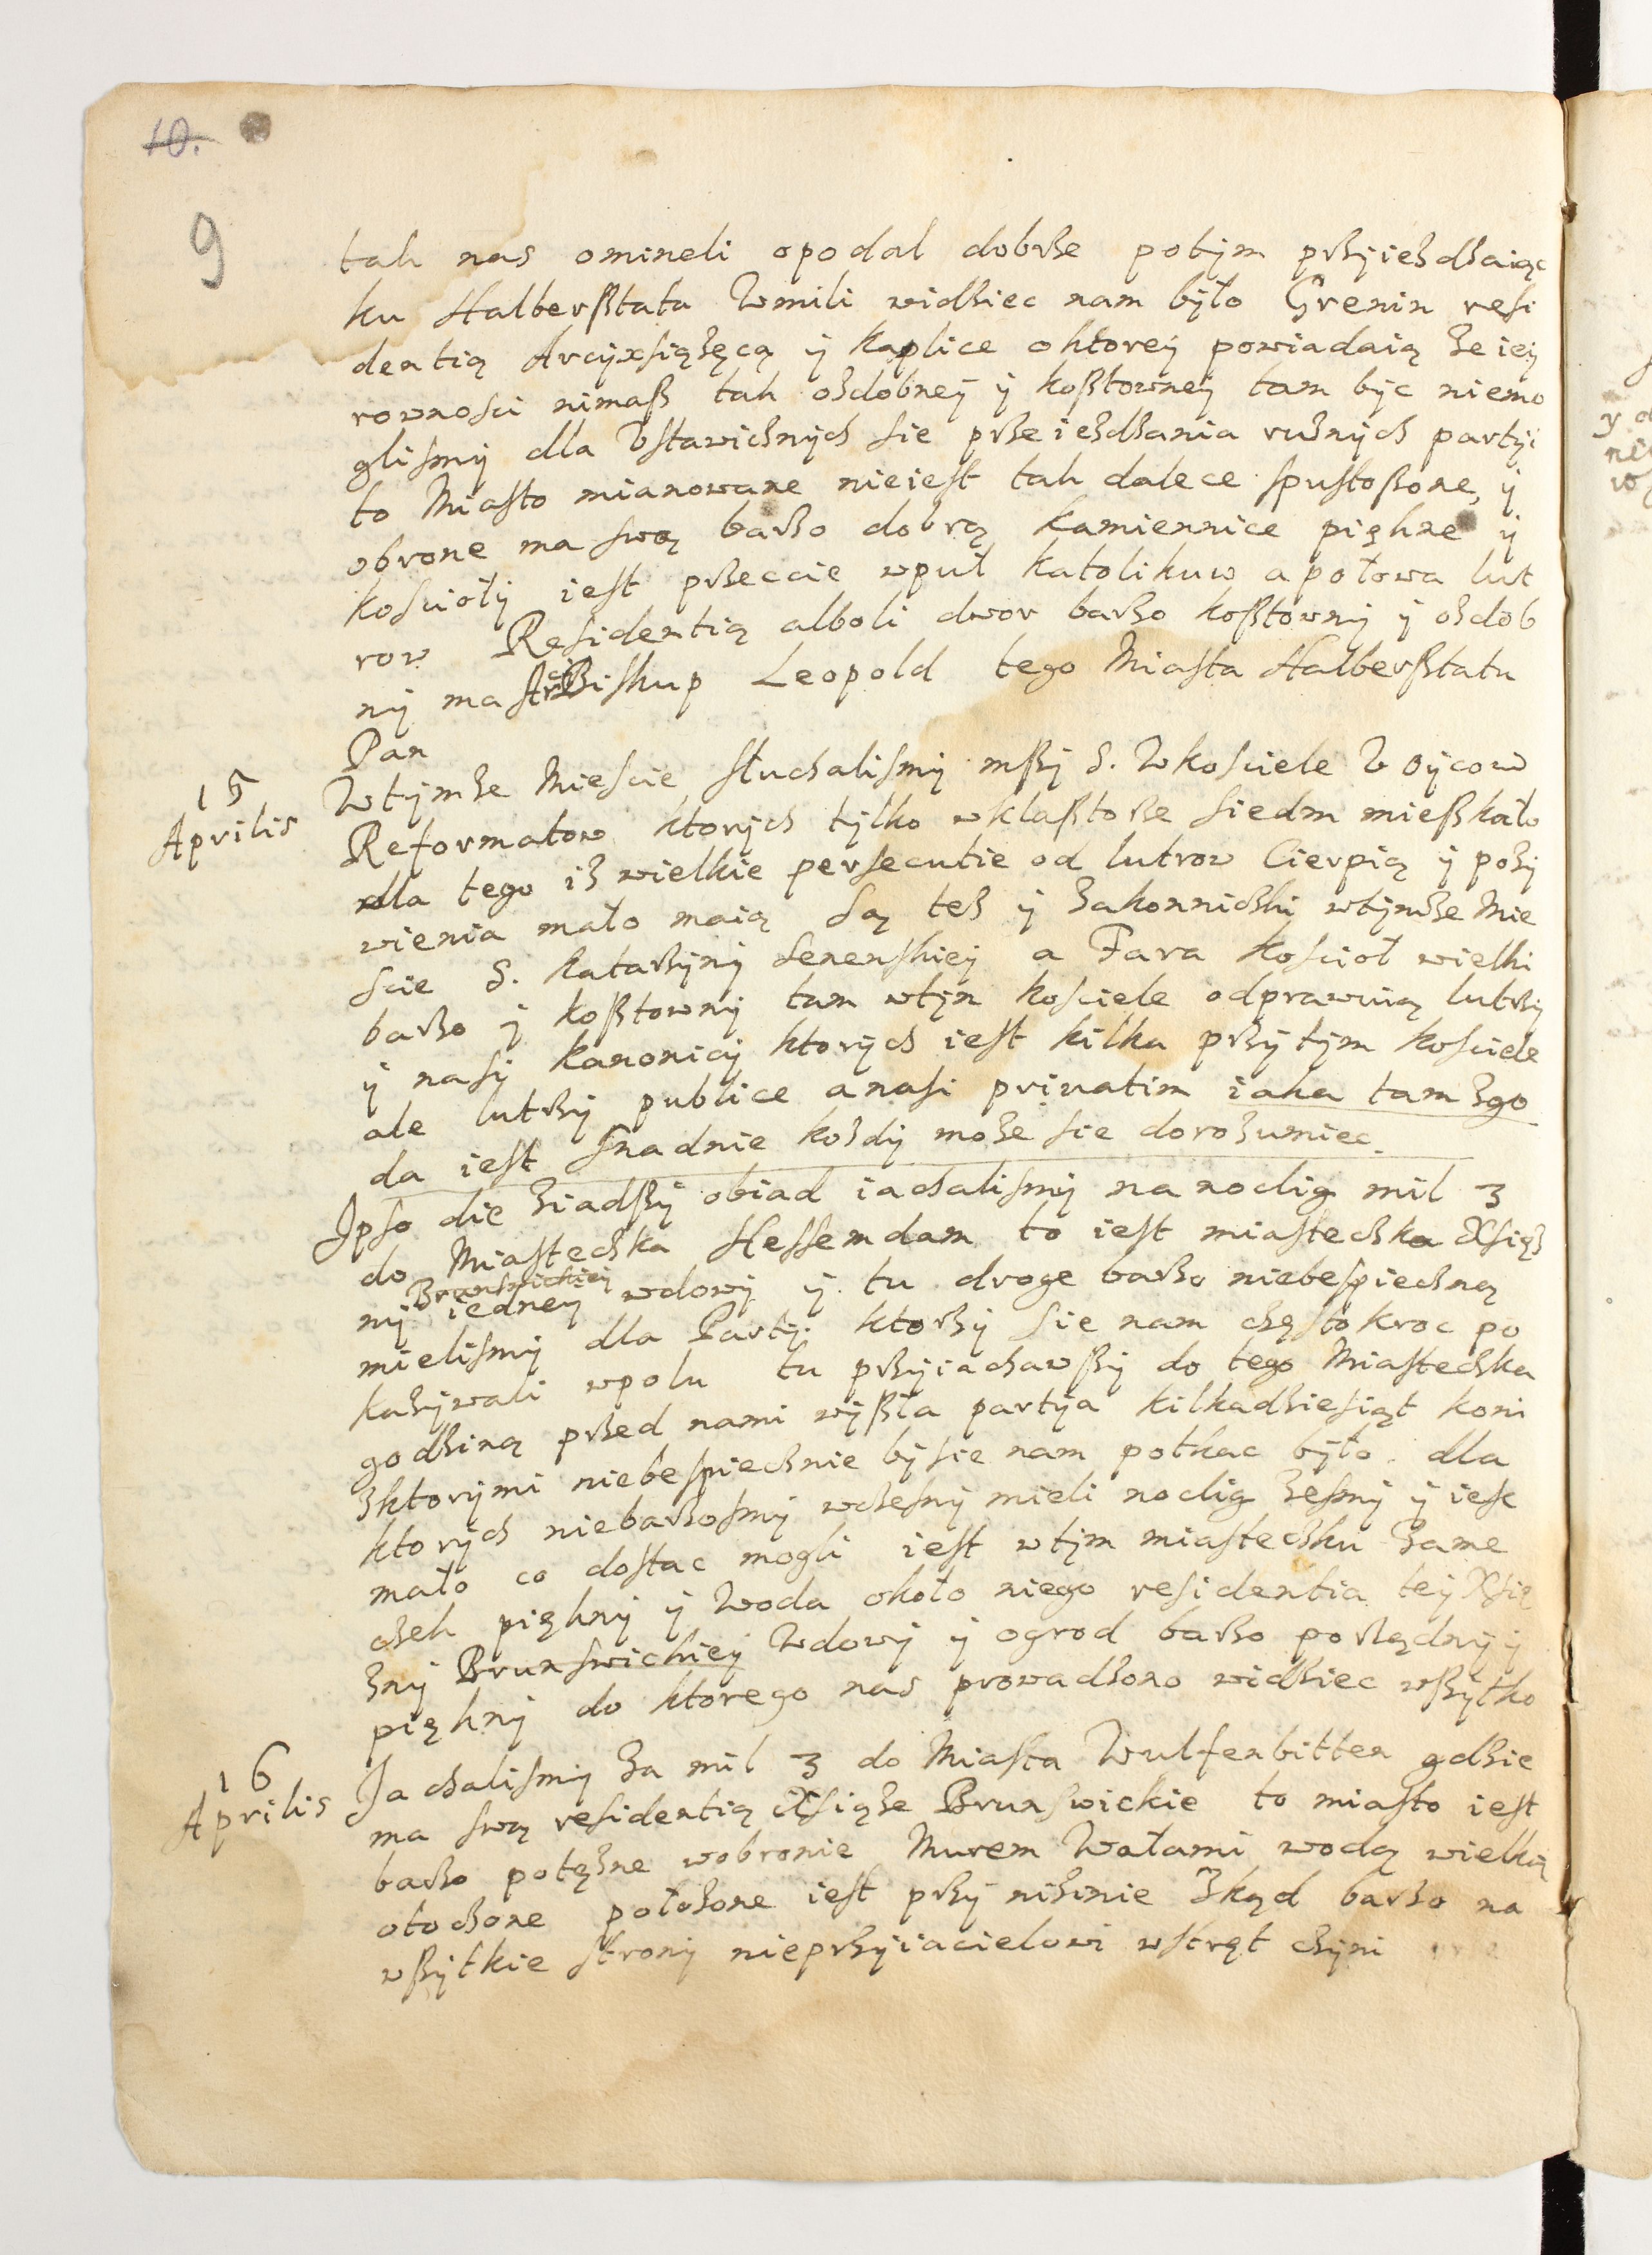 10.
9
tak nas omineli opodal dobrze potym przyiezdzaiąc
ku Halberßtatu W mili widziec nam było Grenin resi
dentią Arcyxsiążęcą y kaplice o ktorey powiadaią że iey
rownosci nimaß tak ozdobney y koßtowney tam byc niemo
glismy dla Vstawicznych sie przeiezdzania ruznych partyi
to Miasto mianowane nieiest tak dalece spustoßone, y
obrone ma swą barzo dobrą kamiennice piękne y
koscioły iest przeccie wpuł katolikuw a połowa lut
row Residentią alboli dwor barzo koßtowny y ozdob
ny ma ArciBiskup Leopold tego Miasta Halberßtatu
Pan
15
Aprilis
W tymze Miescie słuchalismy mßy S. W kosciele V Oycow
Reformatow ktorych tylko w klaßtorze siedm mießkało
dla tego iz wielkie persecutie od lutrow Cierpią y poży
wienia mało maią Są tez y Zakonniczki wtymze Mie
scie S. Katarzyny Senenskiey a Fara kosciol wielki
barzo y koßtowny tam wtym kosciele odprawuią lutrzy
y nasy kanonicy ktorych iest kilku przy tym kosciele
ale lutrzy publice a nasi priuatim iaka tam zgo
da iest snadnie kozdy moze sie dorozumiec
Ipso die ziadßy obiad iachalismy na noclig mil 3
do Miasteczka Hessemdam to iest miasteczko Xsięż
ny iedney Brunswickiey wdowy y tu droge barzo niebespieczną
mielismy dla Party. ktorzy sie nam częstokroc po
kazywali wpolu tu przyiachawßy do tego Miasteczka
godziną przed nami wyßła partya kilkadziesiąt koni
zktorymi niebespiecznie by sie nam potkac było. dla
ktorych niebarzosmy wczesny mieli noclig zesmy y iesc
mało co dostac mogli iest wtym miasteczku Zame
czek piękny y Woda około niego residentia tey Xsię
zny Brunswickiey Wdowy y ogrod barzo porządny y
piękny do ktorego nas prowadzono widziec wßytko
16
Aprilis
Jachalismy za mil 3 do Miasta Wulfenbitten gdzie
ma swą residentią Xsiąże Brunswickie to miasto iest
barzo potężne wobronie Murem Wałami wodą wielką
otoczone położone iest przy nizinie Zkąd barzo na
wßytkie strony nieprzyiacielowi wstręt czyni